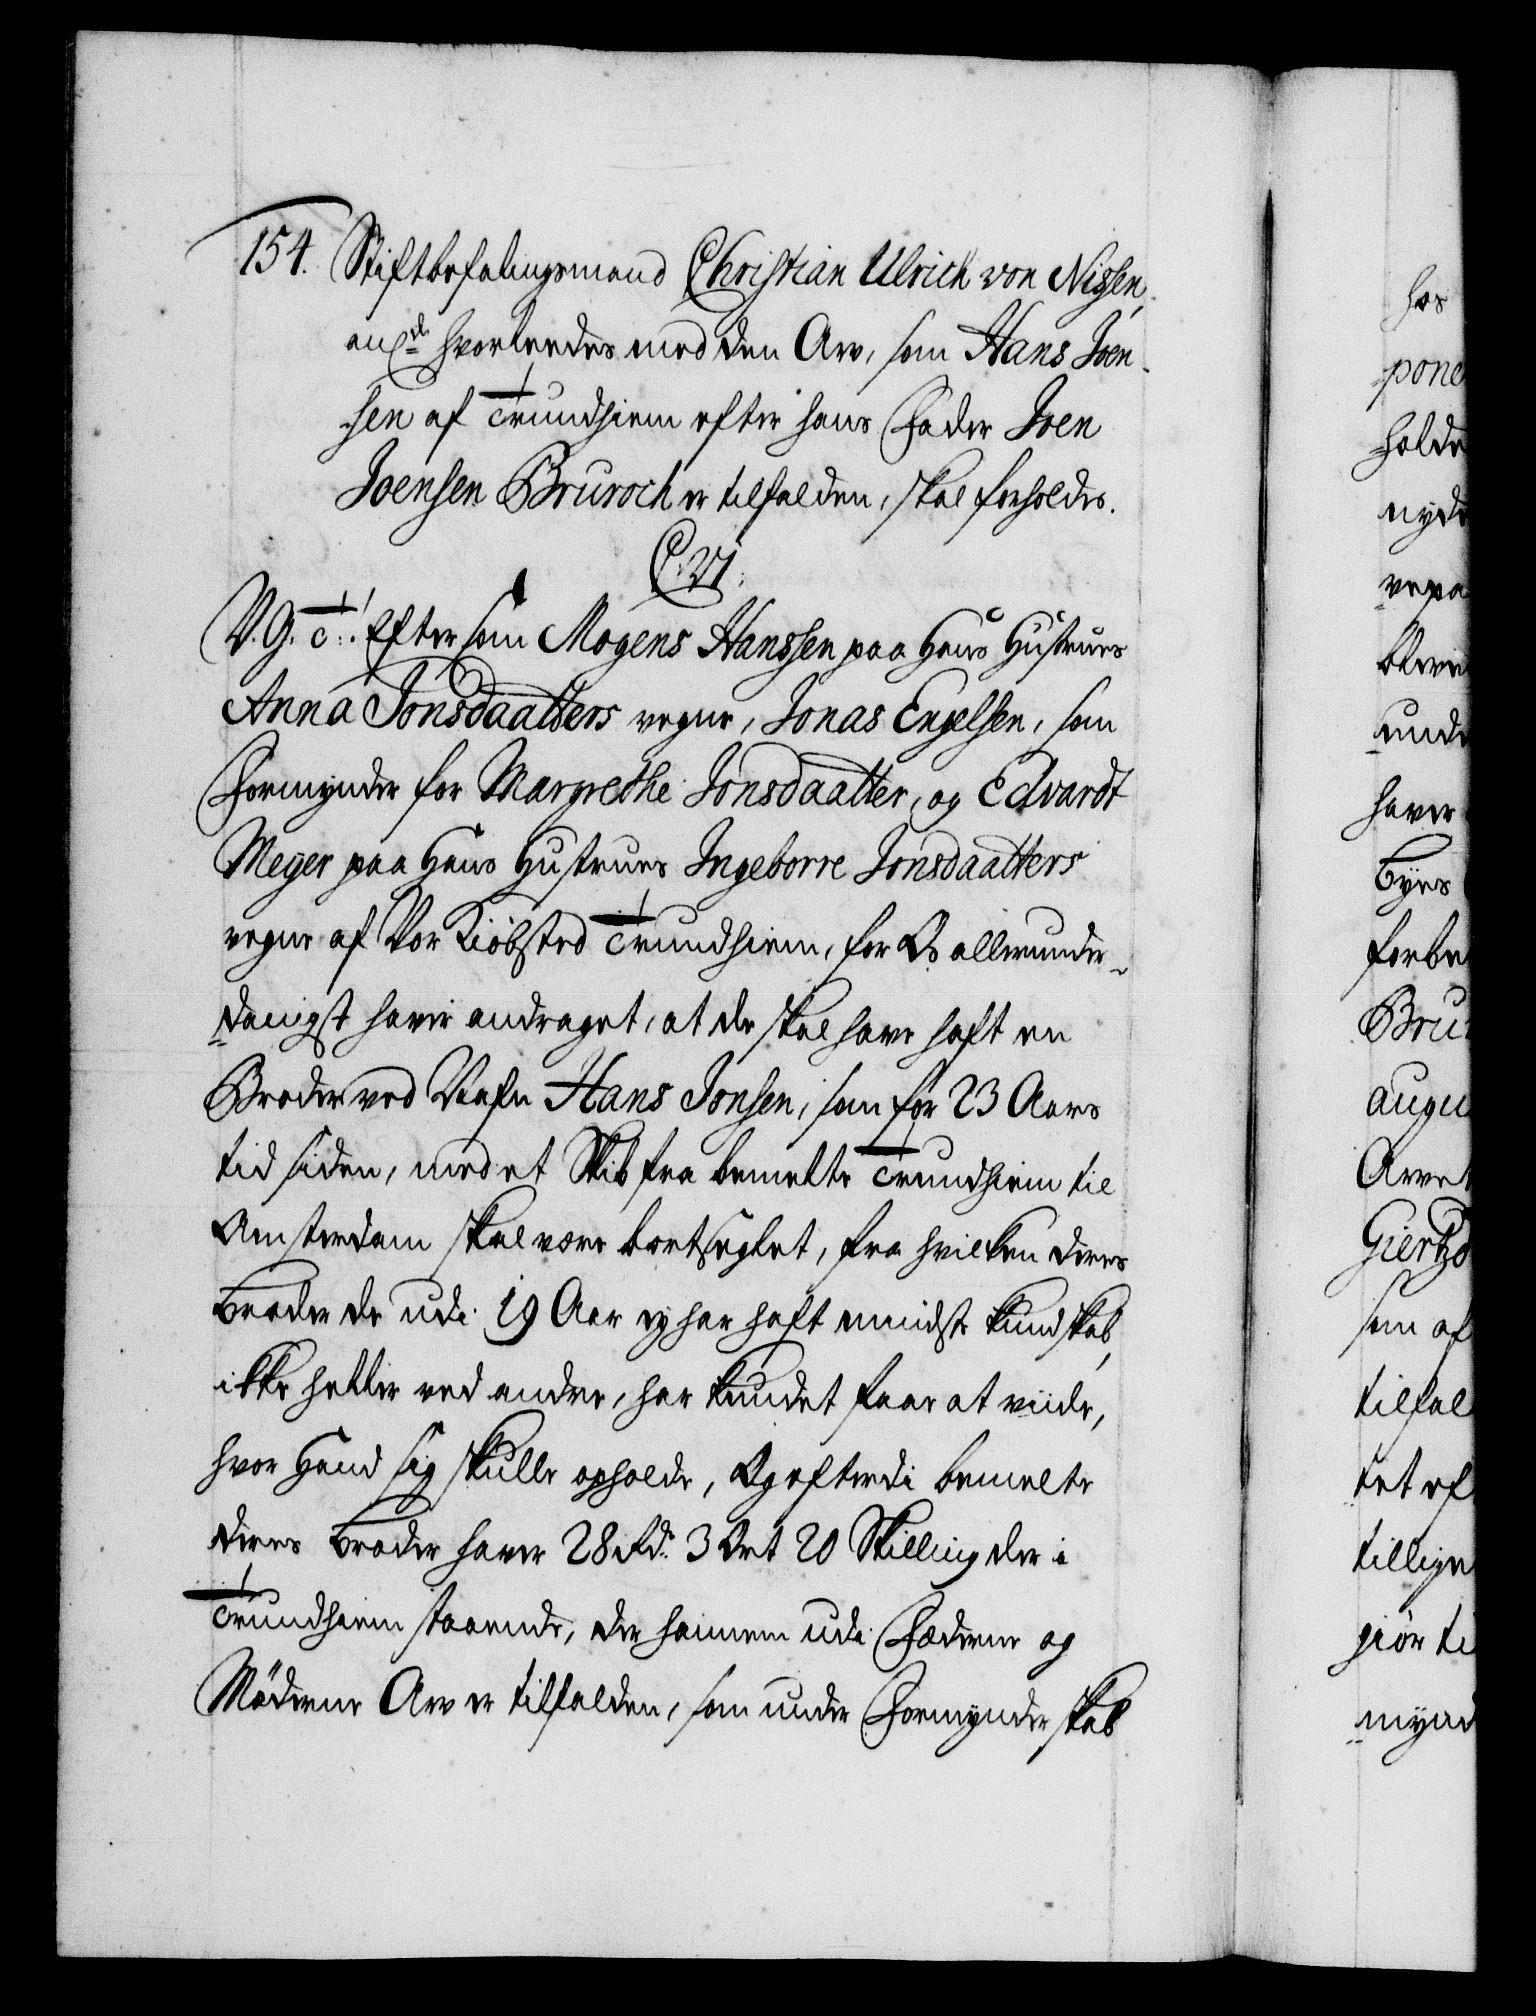 154. Stiftbefalingsmand Christian Ulrich von Nissen,
anl: hvorledes med den Arv, som Hans Joen-
sen af Trundhiem efter hans Fader Joen
Joensen Bruroch er tilfalden, skal forholdes.
C. VI.
V. G. T:. Eftersom Mogens Hanssen paa Hans Hustrues
Anna Jonsdaatters vegne, Jonas Engelsen, som
Formynder for Margrethe Jonsdaatter, og Edvardt
Meyer paa Hans Hustrues Ingeborre Jonsdaatters
vegne af Vor Kiöbsted Trundhiem, for Os allerunder-
danigst haver andraget, at de skal have haft en
Broder ved Nafn Hans Jonsen, som for 23 Aars
tid siden, med et Skib fra bemelte Trundhiem til
Amsterdam skal være bortseglet, fra hvilken deres
Broder de udi 19 Aar ej har haft mindste kundskab,
ikke heller ved andre, har kundet faae at viide,
hvor Hand sig skulle opholde, Og efterdi bemelte
deres Broder haver 28 Rd. 3 Ort 20 Skilling der i
Trundhiem staaende, der hannem udi Fæderne og
Möderne Arv er tilfalden, som under Formynderskab
hos
pone
holde
nyde
repa
bleve
unde
haver
Byes
forbe
Bru
augu
Arvet
Giertzd
som af
tilfal
tet ef
tillige
giör ti
mynd